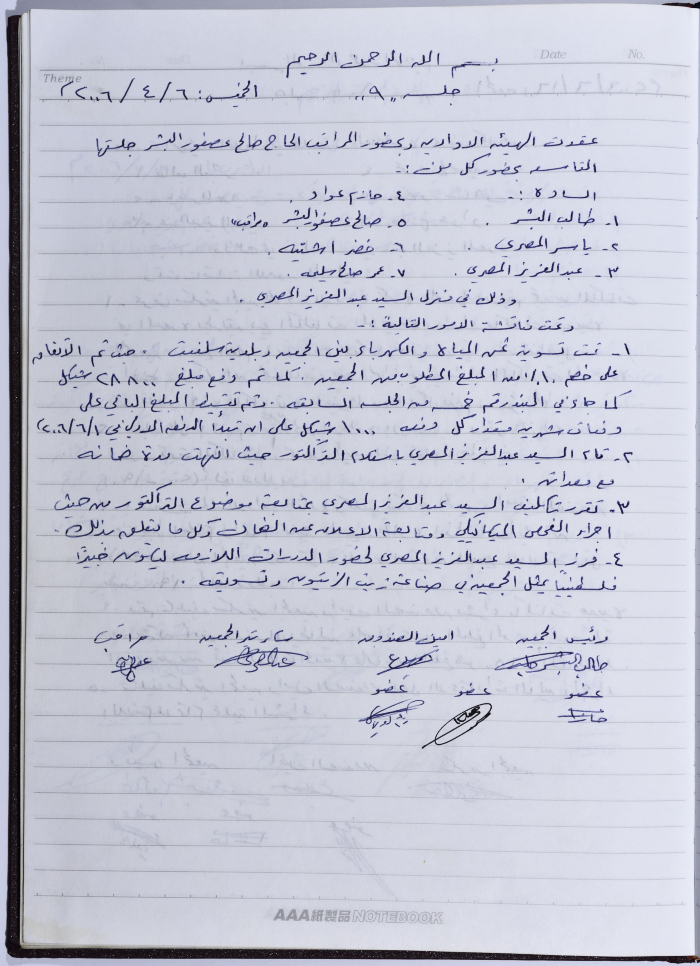 بسم الله الرحمن الرحيم
Date No.
Theme
جلسه "٩" الخميس: ٦/٤/٢٠٠٦
عقدت الهيئه الاداريه وبحضور المراقب الحاج صالح عصفور البشر جلستها
التاسعه بحضور كل من :-
الساده :- ٤- حازم عواد .
١- طالب البشر . ٥- صالح عصفور البشر "مراقب"
٢- ياسر المصري . ٦- خضر اشتيه .
٣- عبد العزيز المصري . ٧- عمر صالح سليمه .
وذلك في منزل السيد عبد العزيز المصري .
وتمت مناقشة الامور التالية :-
١- تمت تسوية ثمن المياه والكهرباء بين الجمعيه وبلدية سلفيت . حيث تم الاتفاق
على خصم ١٠٪ من المبلغ المطلوب من الجمعيه . كما تم دفع مبلغ ٢٨٨٠٠ شيكل
كما جاء في البند رقم خمسه من الجلسه السابقه . وتم تقسيط المبلغ الباقي على
دفعات شهريه مقدار كل دفعه ١٠٠٠ شيكل على ان تبدأ الدفعه الاولى في ١/٦/٢٠٠٦
٢- قام السيد عبد العزيز المصري باستلام التراكتور حيث انتهت مدة ضمانه
مع معداته .
٣- تقرر تكليف السيد عبد العزيز المصري بمتابعة موضوع التراكتور من حيث
اجراء الفحص الميكانيكي ومتابعة الاعلان عن العطاء وكل ما يتعلق بذلك .
٤- فرز السيد عبد العزيز المصري لحضور الدورات اللازمه ليكون خبيرًا
فلسطينيًا يمثل الجمعيه في صناعة زيت الزيتون وتسويقه .
رئيس الجمعيه امين الصندوق سكرتير الجمعيه مراقب
طالب البشر
عضو عضو عضو
AAA紙製品NOTEBOOK